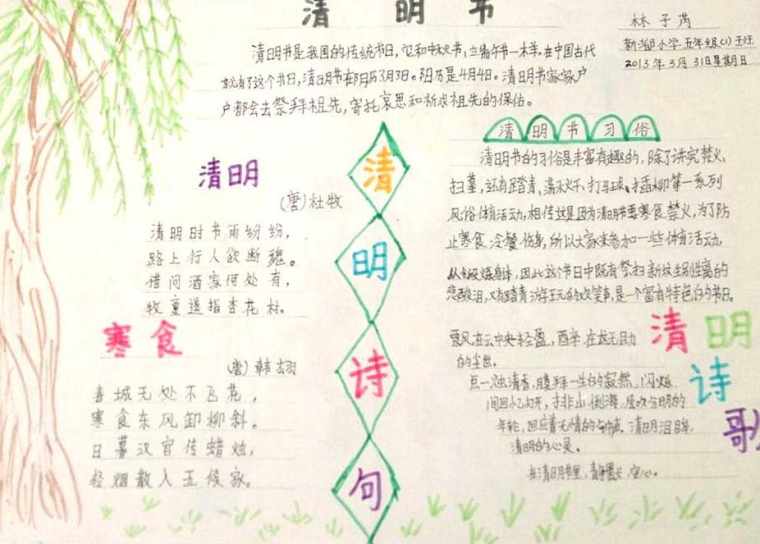 清 明 节
林子芮
新湖小学 五年级(1)班
2013年3月31日星期日
清明节是我国的传统节日,它和中秋节、端午节一样,在中国古代
就有了这个节日,清明节在阴历3月3日。阳历是4月4日。清明节家家户
户都会去祭拜祖先,寄托哀思和祈求祖先的保佑。
清明
(唐)杜牧
清明时节雨纷纷,
路上行人欲断魂。
借问酒家何处有,
牧童遥指杏花村。
寒食
(唐)韩翃
春城无处不飞花,
寒食东风御柳斜。
日暮汉宫传蜡烛,
轻烟散入五侯家。
清
明
诗
句
清明节习俗
清明节的习俗是丰富有趣的,除了讲究禁火、
扫墓,还有踏青、荡秋千、打马球、插柳等一系列
风俗体育活动,相传这是因为清明节要寒食禁火,为了防
止寒食冷餐伤身,所以大家来参加一些体育活动,
因此,这个节日中既有祭扫新坟生别死离的
悲酸泪,又有踏青游玩的欢笑声,是一个富有特色的节日。
的尘世。
清明的心灵。
清明
诗
歌